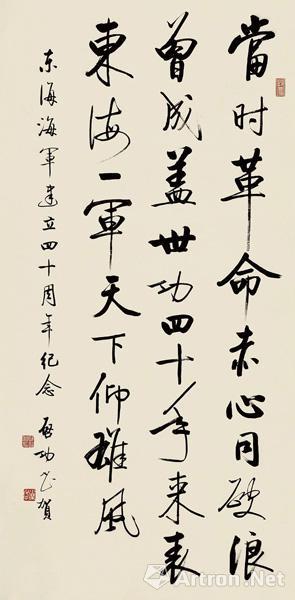 當时革命赤心同破浪
曾成盖世功四十年来表
東海一軍天下仰雄风
东海海軍建立四十周年纪念 启功书贺
Artron.Net